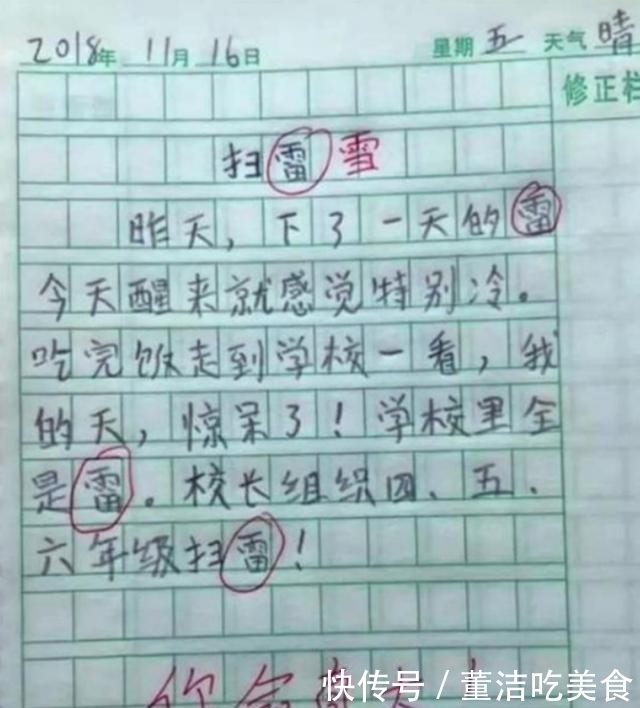 2018年 11月 16日 星期 五 天气 晴
修正栏
扫雷 雪
昨天，下了一天的雷
今天醒来就感觉特别冷。
吃完饭走到学校一看，我
的天，惊呆了！学校里全
是雷。校长组织四、五、
六年级扫雷！
你命真大
快传号 / 董洁吃美食